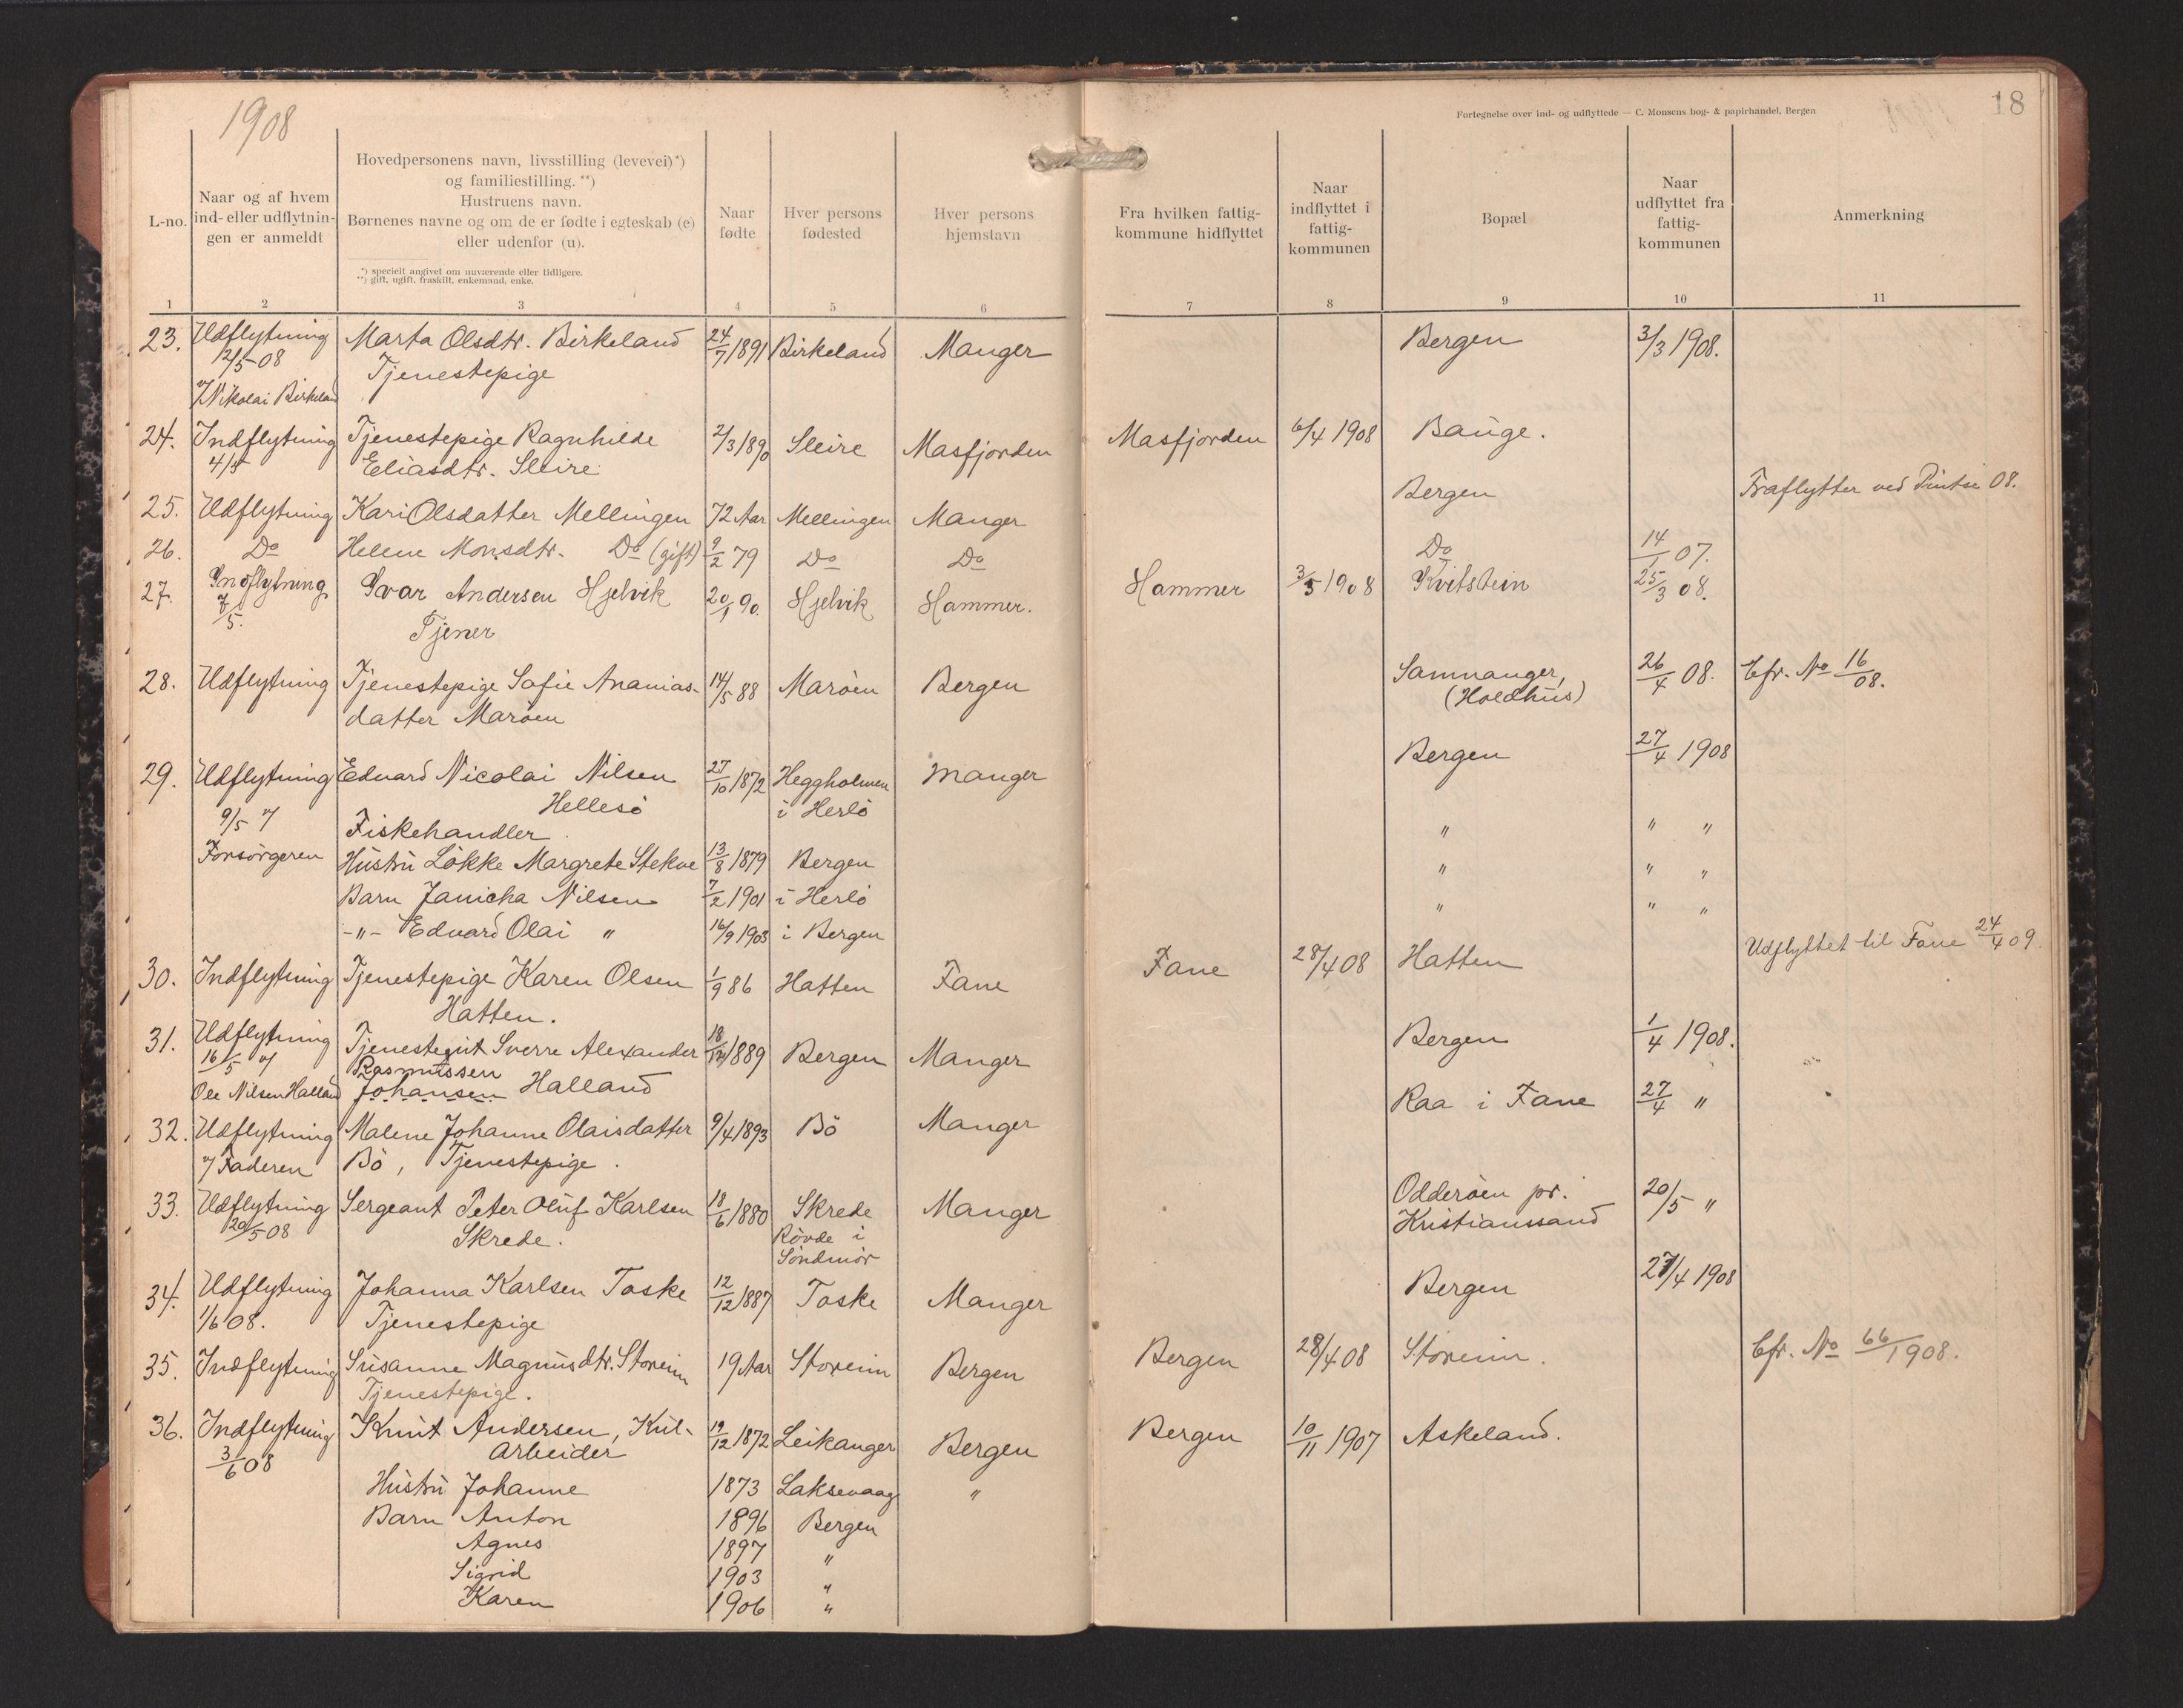 1908
18
Fortegnelse over ind- og udflyttede — C. Monsens bog- & papirhandel, Bergen
L-no.
Naar og af hvem
ind- eller udflytnin-
gen er anmeldt
Hovedpersonens navn, livsstilling (levevei)*)
og familiestilling. **)
Hustruens navn.
Børnenes navne og om de er fødte i egteskab (e)
eller udenfor (u).
*) specielt angivet om nuværende eller tidligere.
**) gift, ugift, fraskilt, enkemand, enke.
Naar
fødte
Hver persons
fødested
Hver persons
hjemstavn
Fra hvilken fattig-
kommune hidflyttet
Naar
indflyttet i
fattig-
kommunen
Bopæl
Naar
udflyttet fra
fattig-
kommunen
Anmerkning
1 2 3 4 5 6 7 8 9 10 11
23. Udflytning Marta Olsdtr. Birkeland 24/7 1891 Birkeland Manger Bergen 3/3 1908.
12/5-08 Tjenestepige
v/ Nikolai Birkeland
24. Indflytning Tjenestepige Ragnhilde 2/3 1890 Sleire Masfjorden Masfjorden 6/4 1908 Bauge.
4/5 Eliasdtr. Sleire
25. Udflytning Kari Olsdatter Mellingen 72 Aar Mellingen Manger Bergen Fraflytter ved Pintse 08.
26. Do Helene Monsdtr. Do (gift) 9/2 79 Do Do Do 14/1 07.
27. Indflytning Ivar Andersen Hjelvik 20/1 90. Hjelvik Hammer. Hammer 3/5 1908 Kvitstein 25/3 08.
7/5. Tjener
28. Udflytning Tjenestepige Sofie Ananias- 14/5 88 Maröen Bergen Samnanger, 26/4 08. Cfr. No 16/08.
datter Maröen (Holdhus)
29. Udflytning Edvard Nicolai Nilsen 27/10 1872 Heggholmen Manger Bergen 27/4 1908
Hellesö i Herlö
9/5 v/ Fiskehandler " " "
Forsörgeren Hustru Lökke Margrete Stekve 13/8 1879 Bergen " " "
Barn Janicha Nilsen 7/2 1901 i Herlö " " "
-"- Edvard Olai " 16/9 1903 i Bergen
30. Indflytning Tjenestepige Karen Olsen 1/9 86 Hatten Fane Fane 28/4 08 Hatten Udflyttet til Fane 24/4 09.
Hatten.
31. Udflytning Tjenestegut Sverre Alexander 18/12 1889 Bergen Manger Bergen 1/4 1908.
16/5 v/ Rasmussen
Ole Nilsen Halland Johansen Halland
32. Udflytning Malene Johanne Olaisdatter 9/4 1893 Bö Manger Raa i Fane 27/4 "
v/ Faderen Bö, Tjenestepige.
33. Udflytning Sergeant Peter Oluf Karlsen 18/6 1880 Skrede Manger Odderöen pr. 20/5 "
20/5 08 Skrede. Rövde i Kristianssand
Söndmör
34. Udflytning Johanna Karlsen Toske 12/12 1887 Toske Manger Bergen 27/4 1908
1/6 08. Tjenestepige
35. Indflytning Susanne Magnusdtr. Storeim 19 Aar Storeim Bergen Bergen 28/4 08 Storeim. Cfr. No 66/1908.
Tjenestepige.
36. Indflytning Knut Andersen, Kul- 19/12 1872 Leikanger Bergen Bergen 10/11 1907 Askeland.
3/6 08 arbeider
Hustru Johanne 1873 Laksevaag "
Barn Anton 1896 Bergen
Agnes 1897 "
Sigrid 1903 "
Karen 1906 "